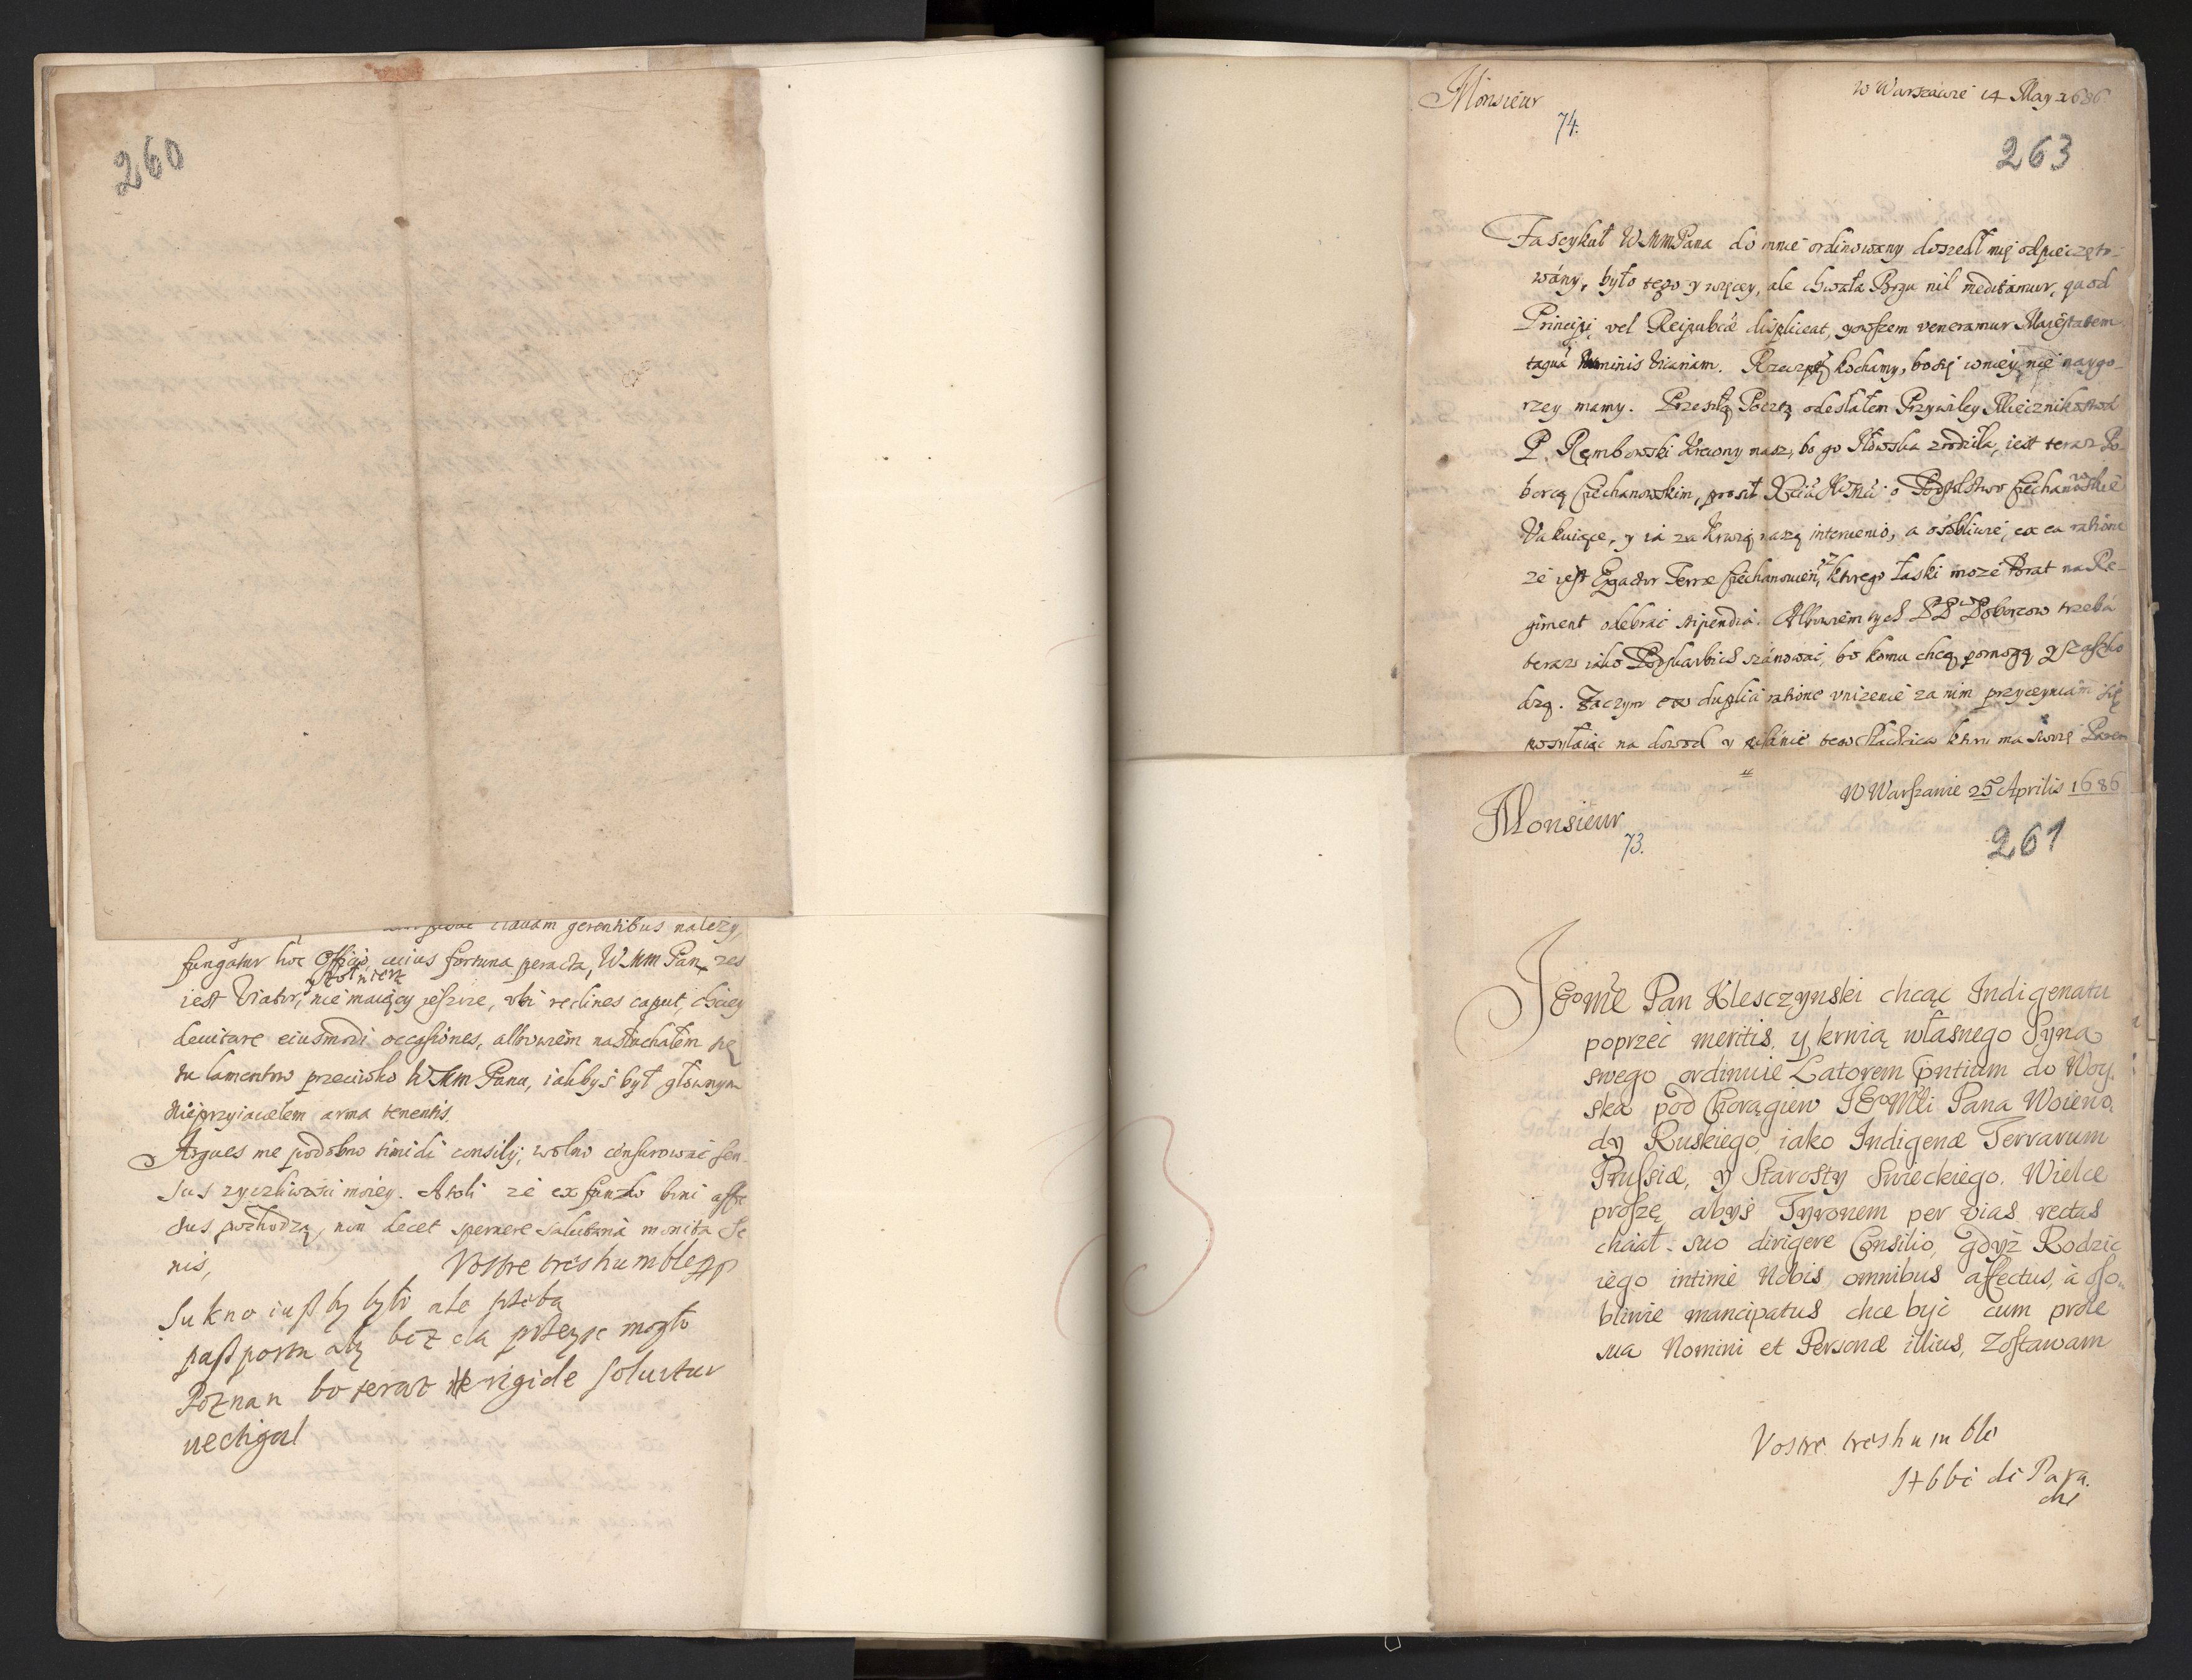 260
clavam gerentibus należy,
fungatur hoc Officio, cuius fortuna peracta, WMm Pan, zes
żołnierz
iest Viator, nie maiący ieszcze, vbi reclines caput, chciey
deuitare eiusmodi occasiones, albowiem nasłuchałem się
tu lamentow przeciwko WMm Pana, iakbyś był głownym
Nieprzyiacielem arma tenentis.
Argues me podobno timidi consilij, wolno censurowac sen-
sus zyczliwosci moiey. Atoli ze ex fundo boni affe
ctus pochodzą, non decet spernere salutaria monita Se
nis,
Vostre treshumble pp
Sukno iusz by było ale trzeba
paszportu aby bez cła przeyść mogło
Poznan bo teraz rigide soluitur
vectigal
Monsieur
w Warszawie 14 May 1686
74.
263
Fascykuł WMmPana do mnie ordinowany doszedł mię odpieczęto-
wány, było tego y więcey, ale chwała Bogu nil meditamur, quod
Principi vel Reipublcæ displiceat, gowszem veneramur Maiestatem
taqua Numinis Vicariam. Rzeczptą kochamy, bosię wniey nie naygo-
rzey mamy. Przeszłą Pocztą odesłałem Przywiley Miecznikostwa
P. Rembowski Krewny nasz, bo go Iłowska zrodziła, iest teraz Po-
borcą Ciechanowskim, prosił o Podstolstwo Ciechanowskie
Vakuiące, y ia za Krwią naszą interuenio, a osobliwie, ex ea ratione
ze iest Exactor Terræ Ciechanouien, ktorego łaski moze Brat na Re-
giment odebrac stipendia. Albowiem tych PP Poborcow trzeba
teraz iako Podskarbich szanowac, bo komu chcą pomogą y zaszko
dzą. Zaczym ex duplici ratione vnizenie za nim przyczyniam się
posyłaiąc na dowod
Monsieur
W Warszawie 25 Aprilis 1686
73.
261
JEoMc Pan Klesczynski chcąc Indigenatu
poprzec meritis, y krwią własnego Syna
swego ordinuie Latorem pntium do Woy
ska pod Chorągiew JEoMści Pana Woiewo
dy Ruskiego, iako Indigenæ Terrarum
Prussiæ, y Starosty Swieckiego. Wielce
proszę, abyś Tyronem per vias rectas
chciał suo dirigere Consilio, gdyż Rodzic
iego intime Nobis omnibus affectus, à oso
bliwie mancipatus chce byc cum prole
sua Nomini et Personæ illius, Zostawam
Vostre treshumble
Abbé di Para.
die